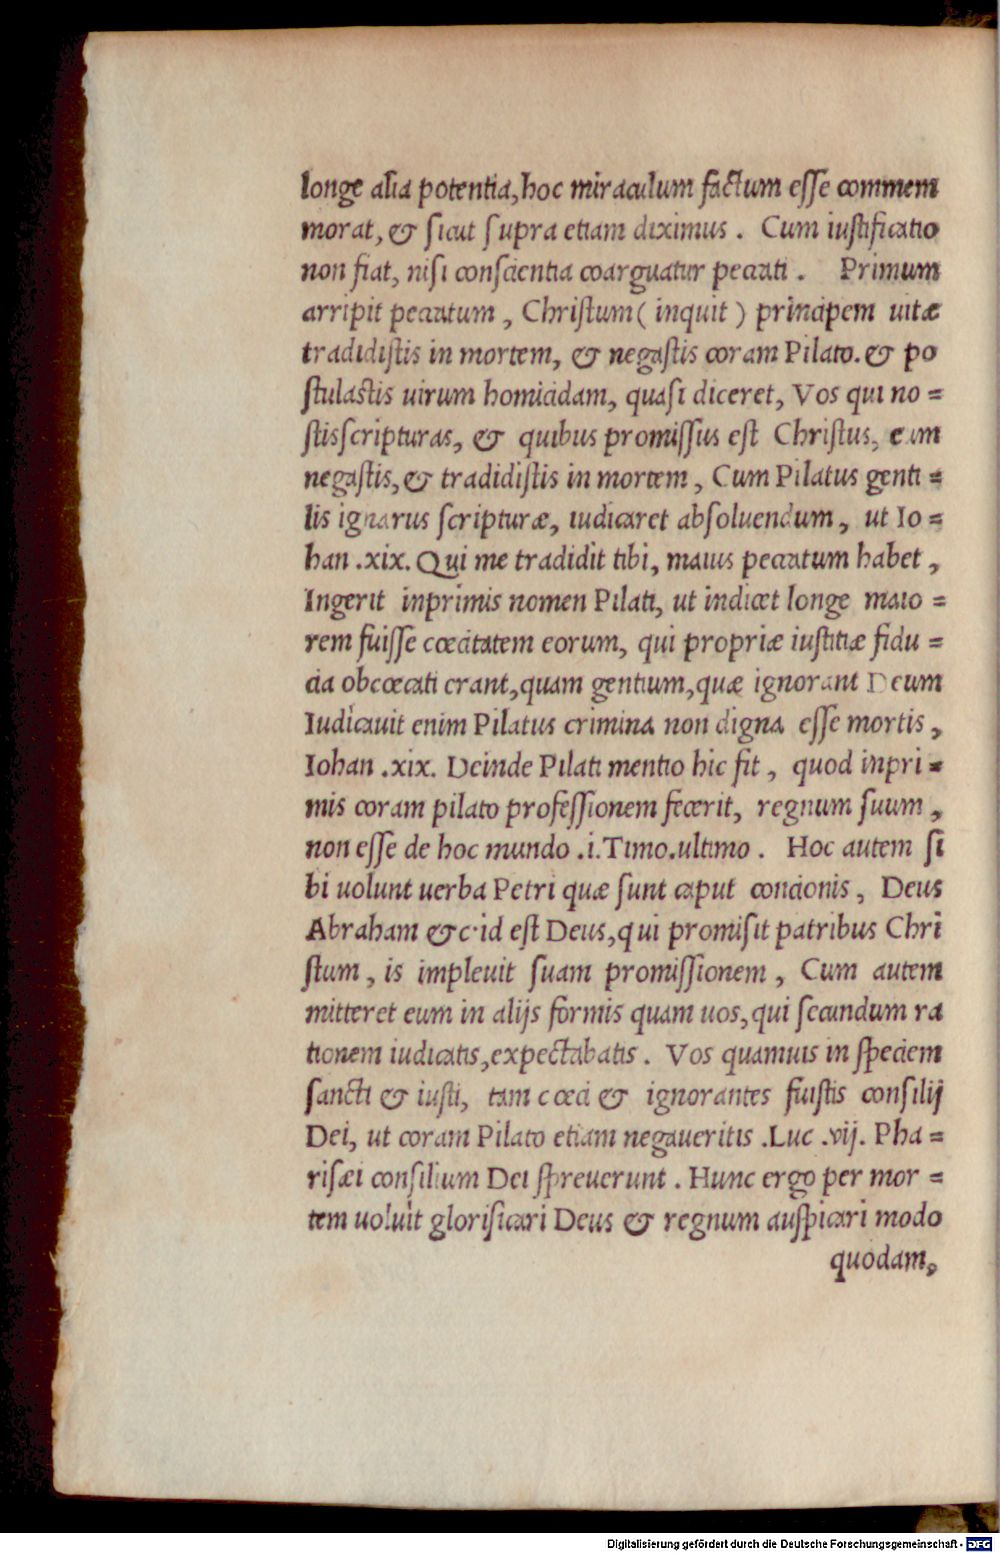 longe alia potentia, hoc miraculum factum esse commem
morat, & sicut supra etiam diximus. Cum iustificatio
non fiat, nisi conscientia coarguatur peccati. Primum
arripit peccatum, Christum (inquit) principem uitæ
tradidistis in mortem, & negastis coram Pilato. & po
stulastis uirum homicidam, quasi diceret, Vos qui no=
stis scripturas, & quibus promissus est Christus, eum
negastis, & tradidistis in mortem, Cum Pilatus genti=
lis ignarus scripturæ, iudicaret absoluendum, ut Io=
han .xix. Qui me tradidit tibi, maius peccatum habet,
Ingerit inprimis nomen Pilati, ut indicet longe maio=
rem fuisse cœcitatem eorum, qui propriæ iustitiæ fidu=
cia obcœcati erant, quam gentium, quæ ignorant Deum
Iudicauit enim Pilatus crimina non digna esse mortis,
Iohan .xix. Deinde Pilati mentio hic fit, quod inpri=
mis coram pilato professionem fecerit, regnum suum,
non esse de hoc mundo .i.Timo.ultimo. Hoc autem si
bi uolunt uerba Petri quæ sunt caput concionis, Deus
Abraham &c. id est Deus, qui promisit patribus Chri
stum, is impleuit suam promissionem, Cum autem
mitteret eum in alijs formis quam uos, qui secundum ra
tionem iudicatis, expectabatis. Vos quamuis in speciem
sancti & iusti, tam cœci & ignorantes fuistis consilij
Dei, ut coram Pilato etiam negaueritis .Luc .vij. Pha=
risæi consilium Dei spreuerunt. Hunc ergo per mor=
tem uoluit glorificari Deus & regnum auspicari modo
quodam,
Digitalisierung gefördert durch die Deutsche Forschungsgemeinschaft - DFG